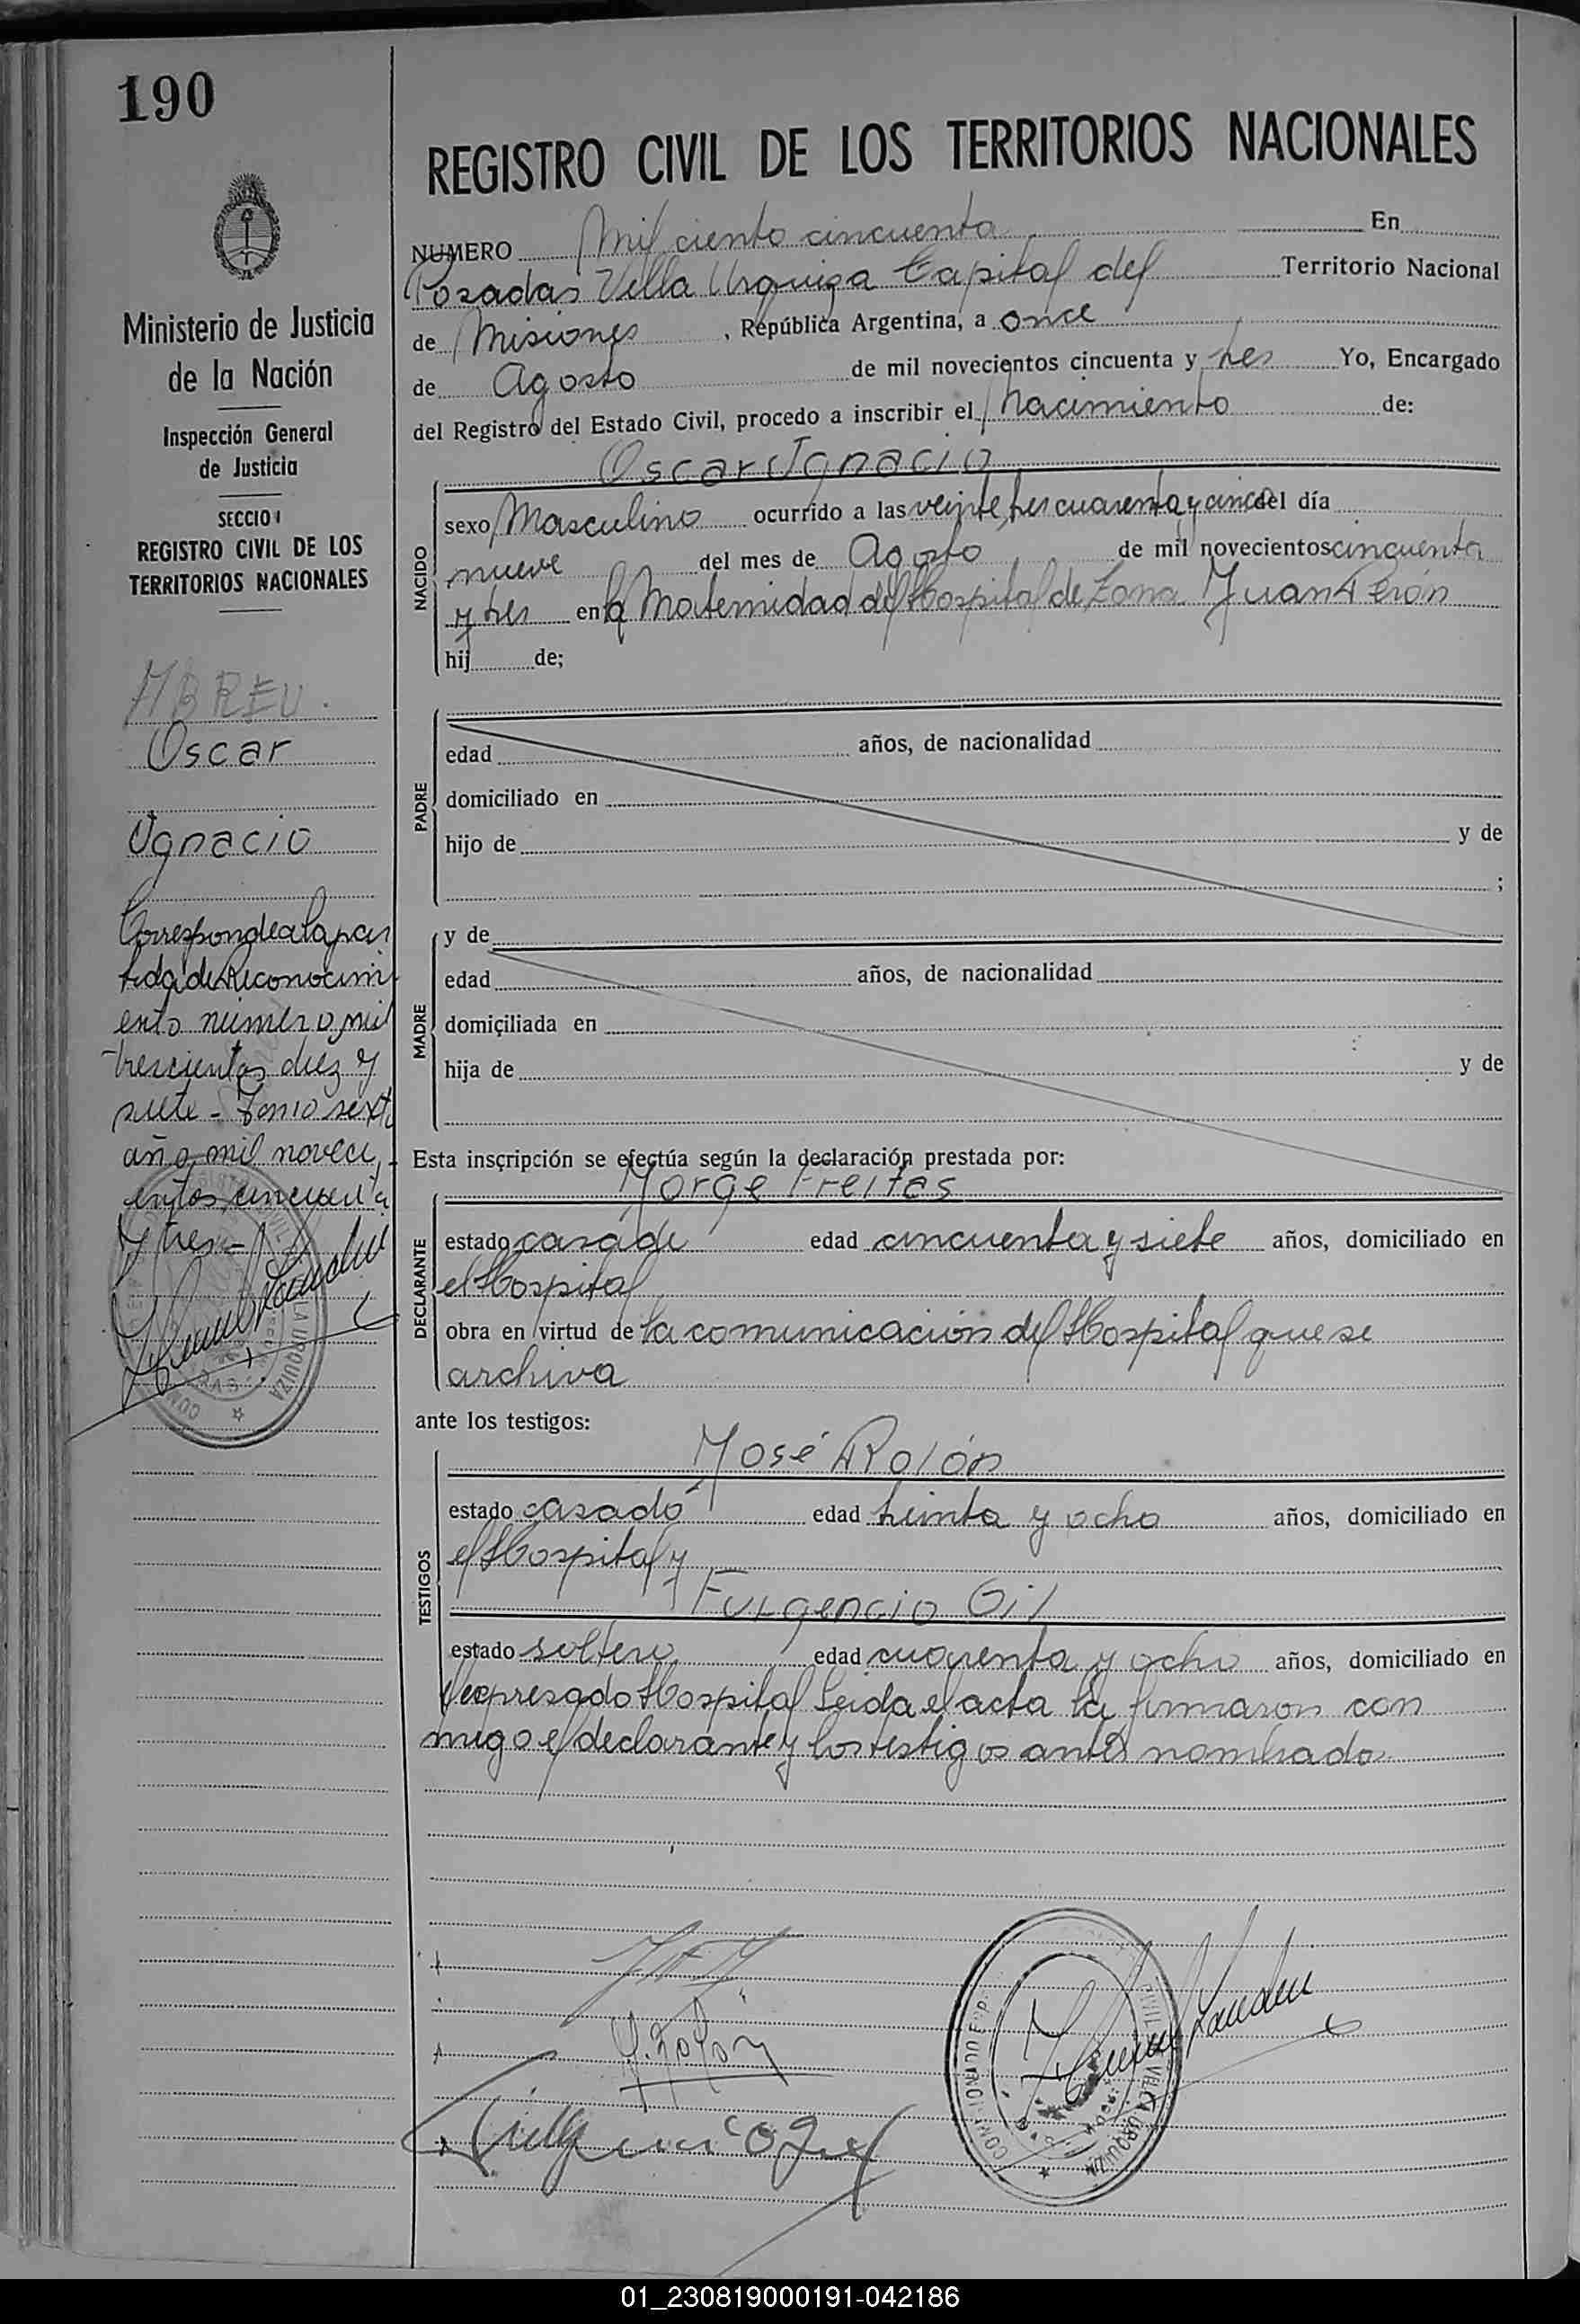 190
REGISTRO CIVIL DE LOS TERRITORIOS NACIONALES
NUMERO Mil ciento cincuenta En
Posadas Villa Urquiza Capital del Territorio Nacional
de Misiones, República Argentina, a once
de Agosto de mil novecientos cincuenta y tres Yo, Encargado
del Registro del Estado Civil, procedo a inscribir el nacimiento de:
Oscar Ignacio
NACIDO
sexo Masculino ocurrido a las veinte tres cuarenta y cinco del día
nueve del mes de Agosto de mil novecientos cincuenta
y tres en la Maternidad del Hospital de Zona Juan Perón
hij de;
PADRE
edad años, de nacionalidad
domiciliado en
hijo de y de
;
MADRE
y de
edad años, de nacionalidad
domiciliada en
hija de y de
Esta inscripción se efectúa según la declaración prestada por:
DECLARANTE
Jorge Freitas
estado casado edad cincuenta y siete años, domiciliado en
el Hospital
obra en virtud de la comunicación del Hospital que se
archiva
ante los testigos:
TESTIGOS
José Rolón
estado casado edad treinta y ocho años, domiciliado en
el Hospital y
Fulgencio Gil
estado soltero edad cuarenta y ocho años, domiciliado en
el expresado Hospital Leida el acta la firmaron con
migo el declarante y los testigos antes nombrados
J. Rolón
Ministerio de Justicia
de la Nación
Inspección General
de Justicia
SECCION
REGISTRO CIVIL DE LOS
TERRITORIOS NACIONALES
ABREU.
Oscar
Ignacio
Corresponde a la par
tida de Reconocimi
ento número mil
trescientos diez y
siete - Tomo sexto
año mil noveci
entos cincuenta
y tres -
VILLA URQUIZA
01_230819000191-042186